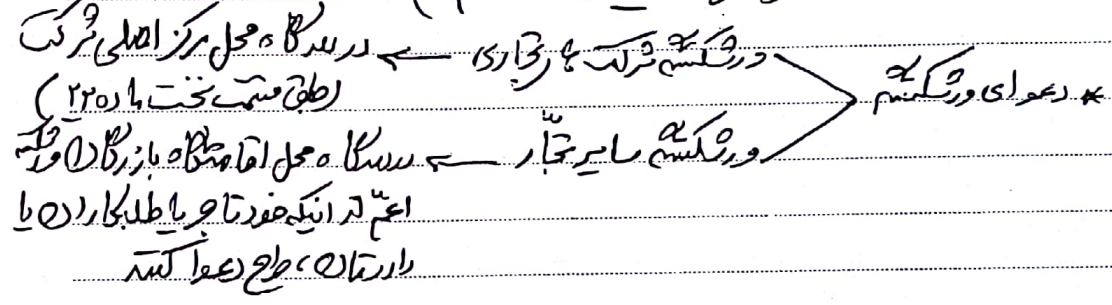 ورشکستگی شرکت های تجاری ← در دادگاه محل مرکز اصلی شرکت
(طبق قسمت نخست ماده ۲۲)
* دعوای ورشکستگی
ورشکستگی سایر تجّار ← دادگاه محل اقامتگاه بازرگان ورشکسته
اعمّ از اینکه خود تاجر یا طلبکاران یا
دادستان، طرح دعوا کنند